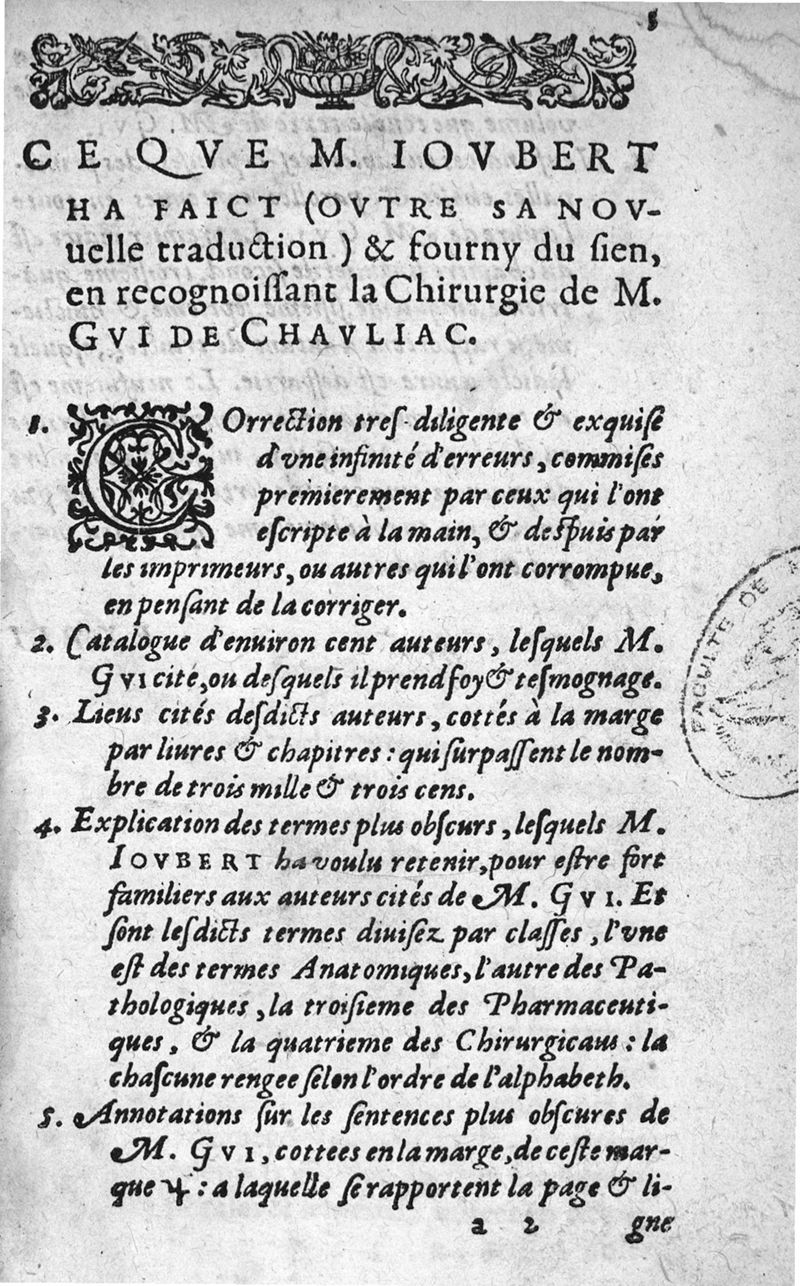 5
CE QVE M. IOVBERT
HA FAICT (OVTRE SA NOV-
uelle traduction) & fourny du ſien,
en recognoiſſant la Chirurgie de M.
GVI DE CHAVLIAC.
1. COrrection treſ-diligente & exquiſe
d'vne infinité d'erreurs, commiſes
premierement par ceux qui l'ont
eſcripte à la main, & deſpuis par
les imprimeurs, ou autres qui l'ont corrompue,
en penſant de la corriger.
2. Catalogue d'enuiron cent auteurs, leſquels M.
GVI cité, ou deſquels il prend foy & teſmognage.
3. Lieus cités deſdicts auteurs, cottés à la marge
par liures & chapitres: qui ſurpaſſent le nom-
bre de trois mille & trois cens.
4. Explication des termes plus obſcurs, leſquels M.
IOVBERT ha voulu retenir, pour eſtre fort
familiers aux auteurs cités de M. GVI. Et
ſont leſdicts termes diuiſez par claſſes, l'vne
eſt des termes Anatomiques, l'autre des Pa-
thologiques, la troiſieme des Pharmaceuti-
ques, & la quatrieme des Chirurgicaus: la
chaſcune rengee ſelon l'ordre de l'alphabeth.
5. Annotations ſur les ſentences plus obſcures de
M. GVI, cottees en la marge, de ceſte mar-
que : a laquelle ſe rapportent la page & li-
a 2 gne
FACULTE DE